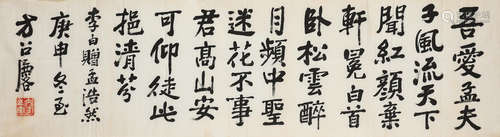 吾愛孟夫
子風流天下
聞紅顏棄
軒冕白首
卧松雲醉
月頻中聖
迷花不事
君高山安
可仰徒此
挹清芬
李白贈孟浩然
庚申冬至
方召麐